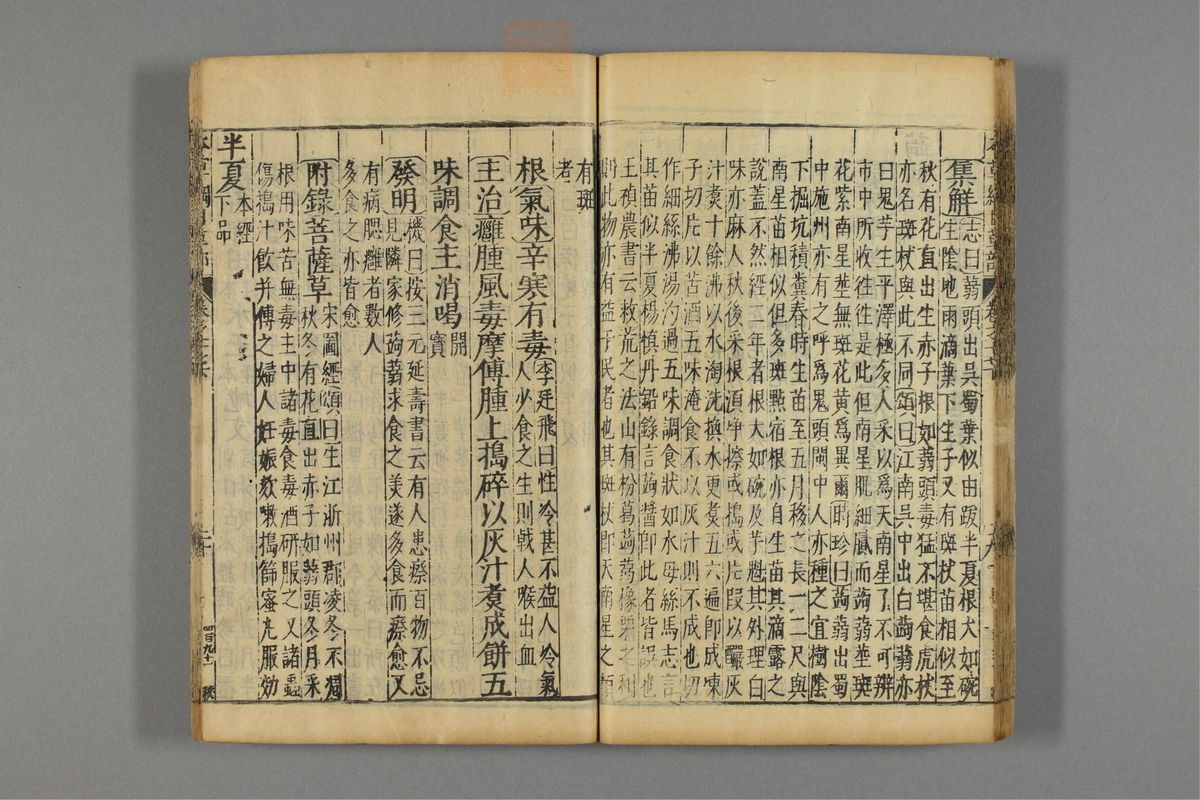 集解志曰蒟頭出吳蜀葉似由跋半夏根大如碗
生陰地雨滴葉下生子又有斑杖苗相似至
秋有花直出生赤子根如蒟頭毒猛不堪食虎杖
亦名斑杖與此不同頌曰江南吳中出白蒟蒻亦
曰鬼芋生平澤極多人采以爲天南星了不可辨
市中所收往往是此但南星肌細膩而蒟苗莖斑
花紫南星莖無斑花黃爲異爾時珍曰蒟蒻出蜀
中施州亦有之呼爲鬼頭閩中人亦種之宜樹陰
下掘坑積糞春時生苗至五月移之長一二尺與
南星苗相似但多斑點宿根亦自生苗其滴露之
說蓋不然經二年者根大如碗及芋魁其外理白
味亦麻人秋後采根須凈擦或搗或片段以釅灰
汁煮十餘沸以水淘洗換水更煮五六遍卽成凍
子切片以苦酒五味淹食不以灰汁則不成也切
作細絲沸湯汋過五味調食狀如水母絲馬志言
其苗似半夏楊慎丹鉛錄言蒟醬卽此者皆誤也
王禎農書云救荒之法山有粉葛蒟蒻橡栗之利
則此物亦有益于民者也其斑杖卽天南星之類
有斑
者
根氣味辛寒有毒李廷飛曰性冷甚不益人冷氣
人少食之生則戟人喉出血
主治癰腫風毒摩傅腫上搗碎以灰汁煮成餅五
味調食主消喝開
寶
發明機曰按三元延壽書云有人患瘵百物不忌
見隣家修蒟蒻求食之美遂多食而瘵愈又
有病腮癰者數人
多食之亦皆愈
附錄菩薩草宋圖經頌曰生江浙州郡凌冬不凋
秋冬有花直出赤子如蒻頭冬月采
根用味苦無毒主中諸毒食毒酒研服之又諸蟲
傷搗汁飲幷傅之婦人妊娠欬嗽搗篩蜜丸服効
半夏本經
下品